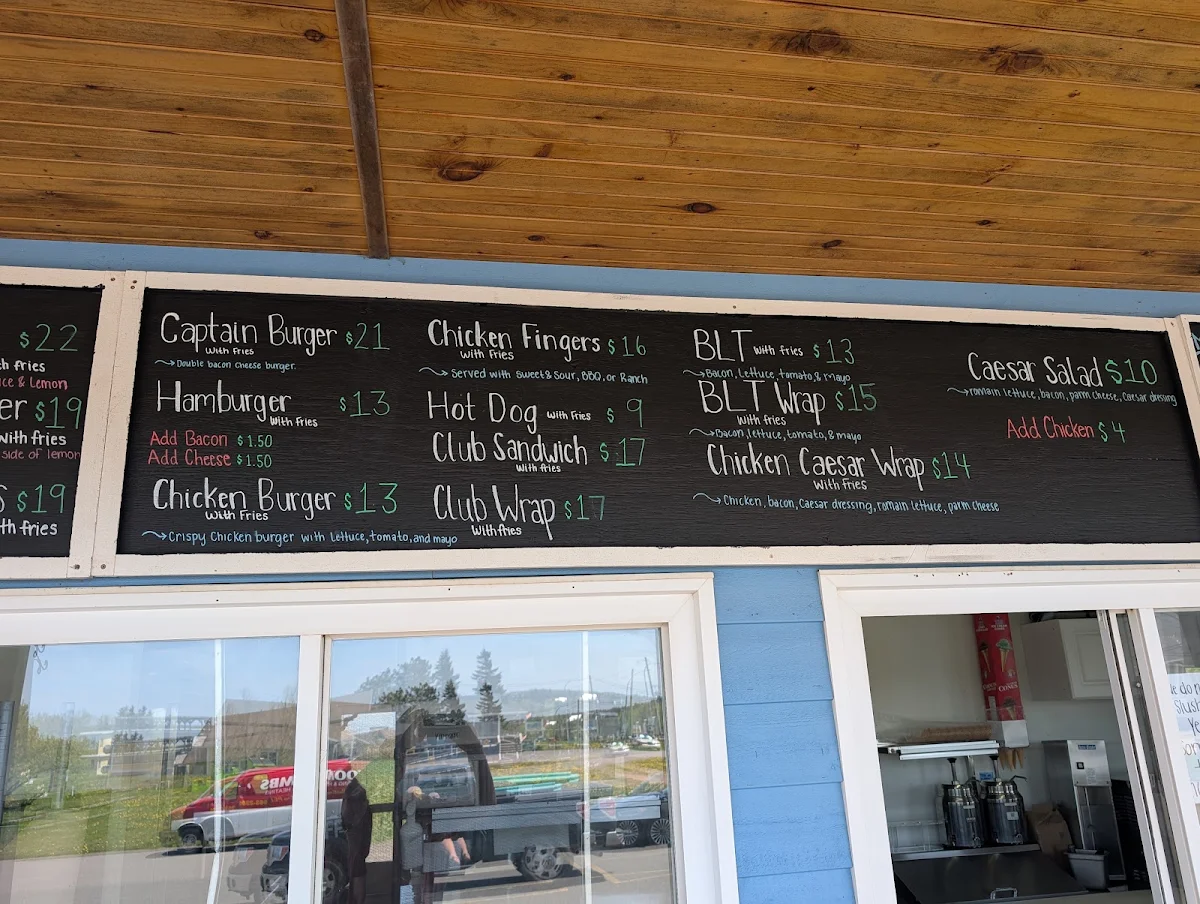 $22
th fries
ce & Lemon
er $19
with fries
side of lemon
S $19
th fries
Captain Burger $21
With Fries
Double bacon cheese burger.
Hamburger $13
With Fries
Add Bacon $1.50
Add Cheese $1.50
Chicken Burger $13
With Fries
Crispy Chicken burger with Lettuce, tomato, and mayo
Chicken Fingers $16
With Fries
Served with sweet & sour, BBQ, or Ranch
Hot Dog with Fries $9
Club Sandwich $17
With fries
Club Wrap $17
With fries
BLT with fries $13
Bacon, Lettuce, tomato, & mayo
BLT Wrap $15
With fries
Bacon, lettuce, tomato, & mayo
Chicken Caesar Wrap $14
With fries
Chicken, bacon, Caesar dressing, romain lettuce, parm cheese
Caesar Salad $10
romain lettuce, bacon, parm cheese, Caesar dressing
Add Chicken $4